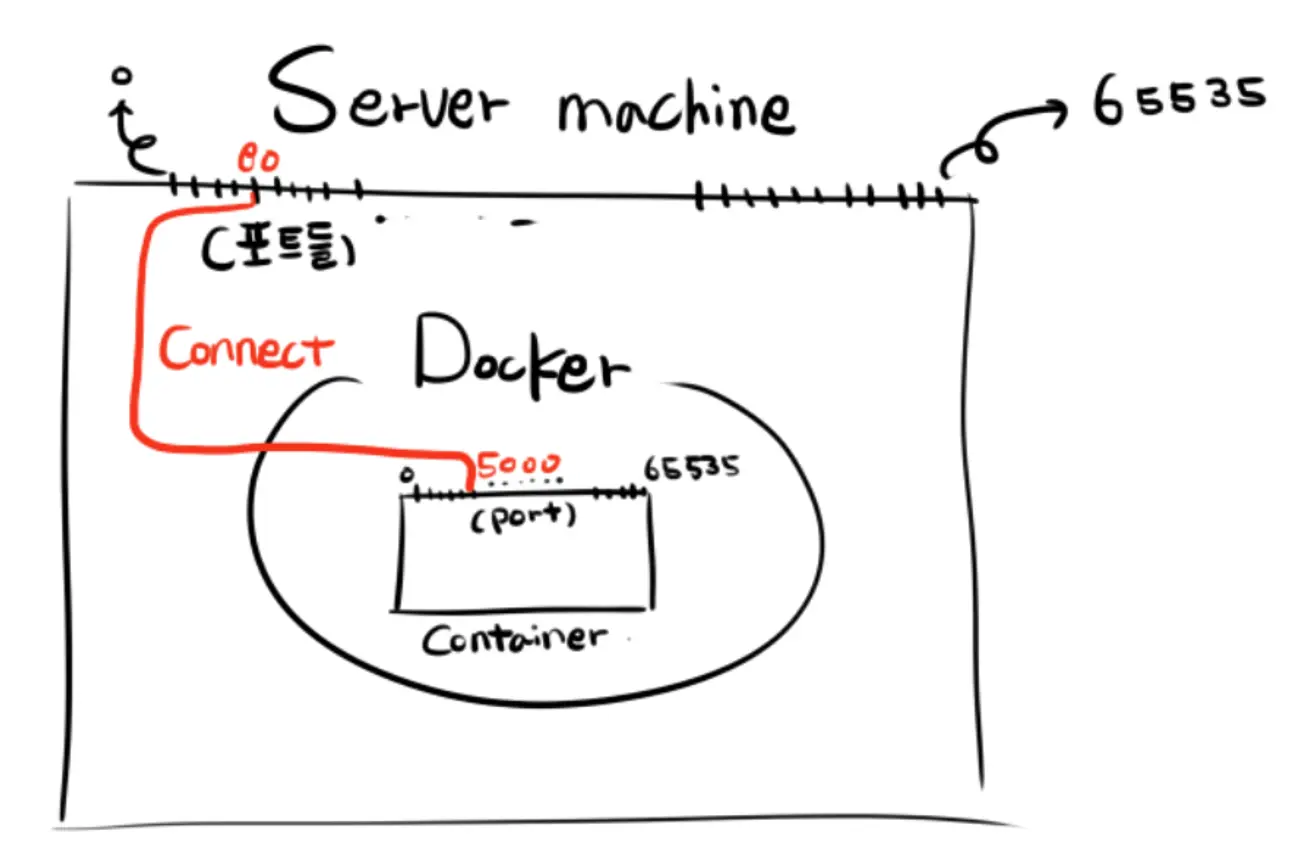 0
Server machine
65535
80
(포트들)
Connect
Docker
0
5000
65535
(port)
Container